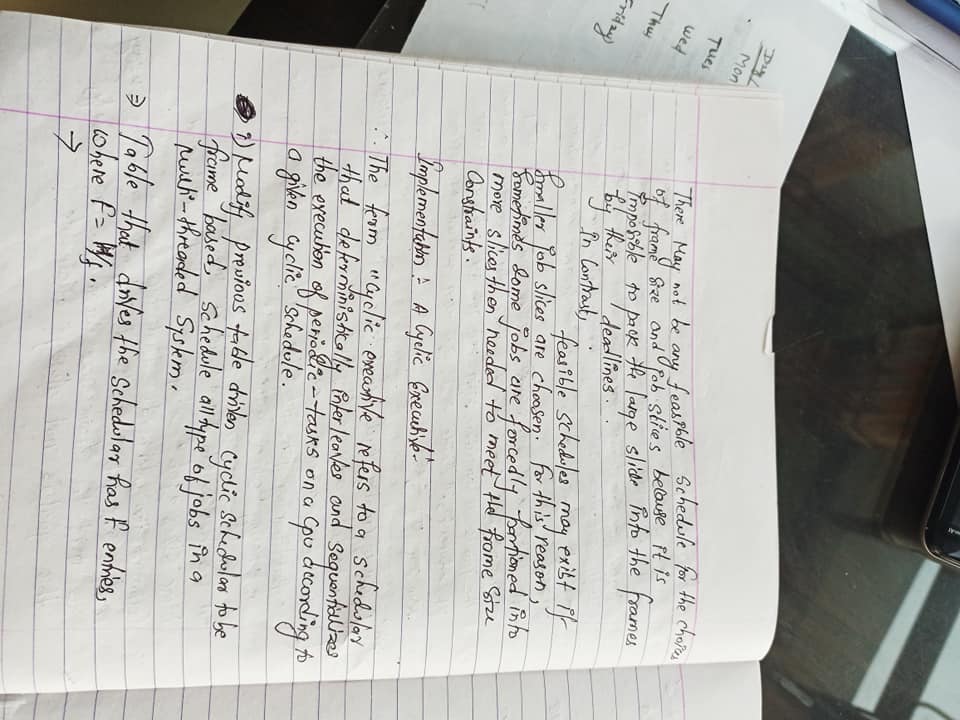 There May not be any feasible Schedule for the choices
of frame size and job slices because it is
impossible to pack the large slide into the frames
by their deadlines.
In Contrast,
feasible schedules may exist if
smaller job slices are choosen. for this reason,
Sometimes Some jobs are forcedly partioned into
more slices then needed to meet the frame size
Constraints.
Implementation :- A Cyclic Executive-
∴ The term "Cyclic executive refers to a schedular
that deterministically interleaves and sequentializes
the execution of periodic - tasks on a Cpu according to
a given cyclic schedule.
i) Modify previous table driven cyclic schedular to be
frame based, schedule all type of jobs in a
multi-threaded System.
⇒ Table that drives the Schedular has F entries,
where F =
→
Day
Mon
Tues
Wed
Thu
Friday